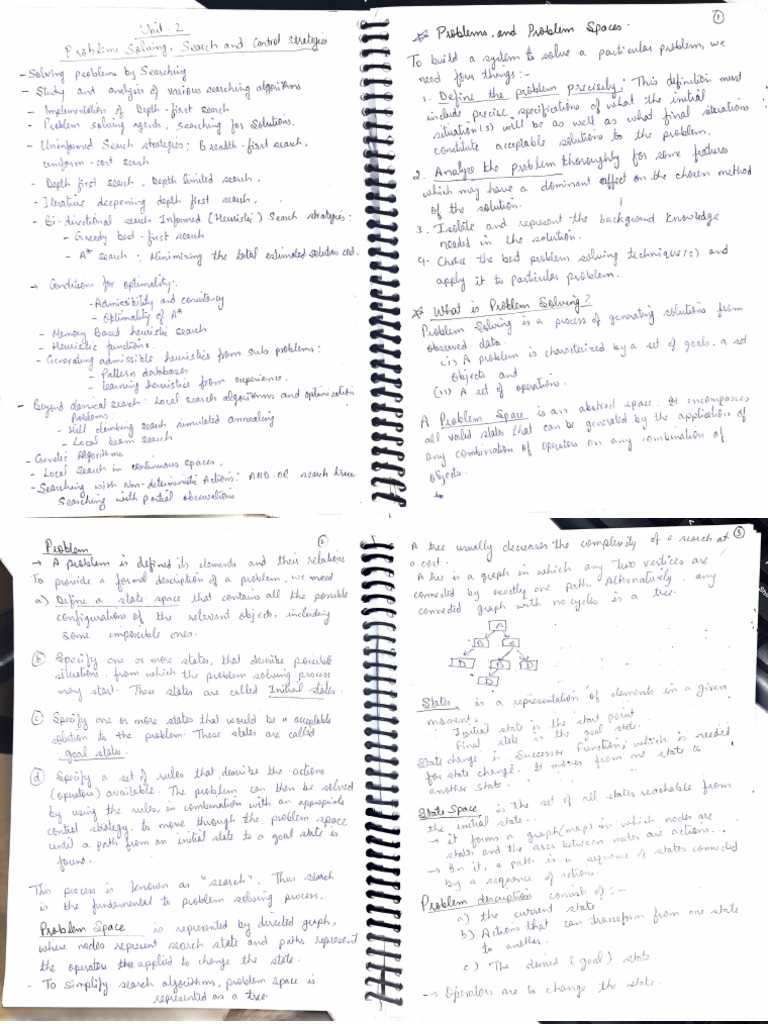 Unit-2
Problem Solving, Search and Control Strategies
- Solving problems by Searching
- Study and analysis of various searching algorithms
- Implementation of Depth-first search
- Problem solving agents, searching for solutions.
- Uninformed Search strategies: Breadth-first search,
uniform-cost search
- Depth first search, Depth limited search,
- Iterative deepening depth first search,
- Bi-directional search Informed (Heuristic) Search strategies:
- Greedy best-first search
- A* search: Minimizing the total estimated solution cost.
→ Conditions for optimality:
- Admissibility and consistency
- Optimality of A*
- Memory Based heuristic search
- Heuristic functions.
- Generating admissible heuristics from sub problems:
- Pattern databases
- learning heuristics from experience.
- Beyond classical search: Local search algorithms and optimization
problems:
- Hill climbing search simulated annealing
- Local beam search
- Genetic Algorithms
- Local Search in continuous spaces.
- Searching with Non-deterministic Actions: AND-OR search trees
Searching with partial observations
1
Problems, and Problem Spaces.
To build a system to solve a particular problem, we
need four things:-
1. Define the problem precisely: This definition must
include precise specifications of what the initial
situation(s) will be as well as what final situations
constitute acceptable solutions to the problem.
2. Analyze the problem thoroughly for some features
which may have a dominant effect on the chosen method
of the solution.
3. Isolate and represent the background knowledge
needed in the solution.
4. Choose the best problem solving technique(s) and
apply it to particular problem.
What is Problem Solving?
Problem Solving is a process of generating solutions from
observed data.
(i) A problem is characterized by a set of goals, a set
objects and
(ii) A set of operations.
A Problem Space is an abstract space. It encompasses
all valid states that can be generated by the application of
any combination of operators on any combination of
objects.
2
Problem
→ A problem is defined its elements and their relations
To provide a formal description of a problem, we need
a) Define a state space that contains all the possible
configurations of the relevant objects, including
some impossible ones.
(b) Specify one or more states, that describe possible
situations, from which the problem solving process
may start. These states are called Initial states.
(c) Specify one or more states that would be a acceptable
solution to the problem. These states are called
goal states.
(d) Specify a set of rules that describe the actions
(operators) available. The problem can then be solved
by using the rules, in combination with an appropriate
control strategy, to move through the problem space
until a path from an initial state to a goal state is
found.
This process is known as "search". Thus search
is the fundamental to problem solving process.
Problem Space is represented by directed graph,
where nodes represent search state and paths represent
the operators applied to change the state.
- To simplify search algorithms, problem space is
represented as a tree.
3
A tree usually decreases the complexity of a search at
a cost.
A tree is a graph in which any two vertices are
connected by exactly one path. Alternatively, any
connected graph with no cycles is a tree.
A
B C
D D
States, is a representation of elements in a given
moment.
Initial state is the start point
Final state is the goal state.
State change is Successor Function, which is needed
for state change. It moves from one state to
another state.
State Space is the set of all states reachable from
the initial state.
→ it forms a graph(map) in which nodes are
states and the arcs between nodes are actions.
→ In it, a path is a sequence of states connected
by a sequence of actions.
Problem description consists of:-
a) the current state
b) Actions that can transform from one state
to another.
c) The desired (goal) state
→ Operators are to change the state.